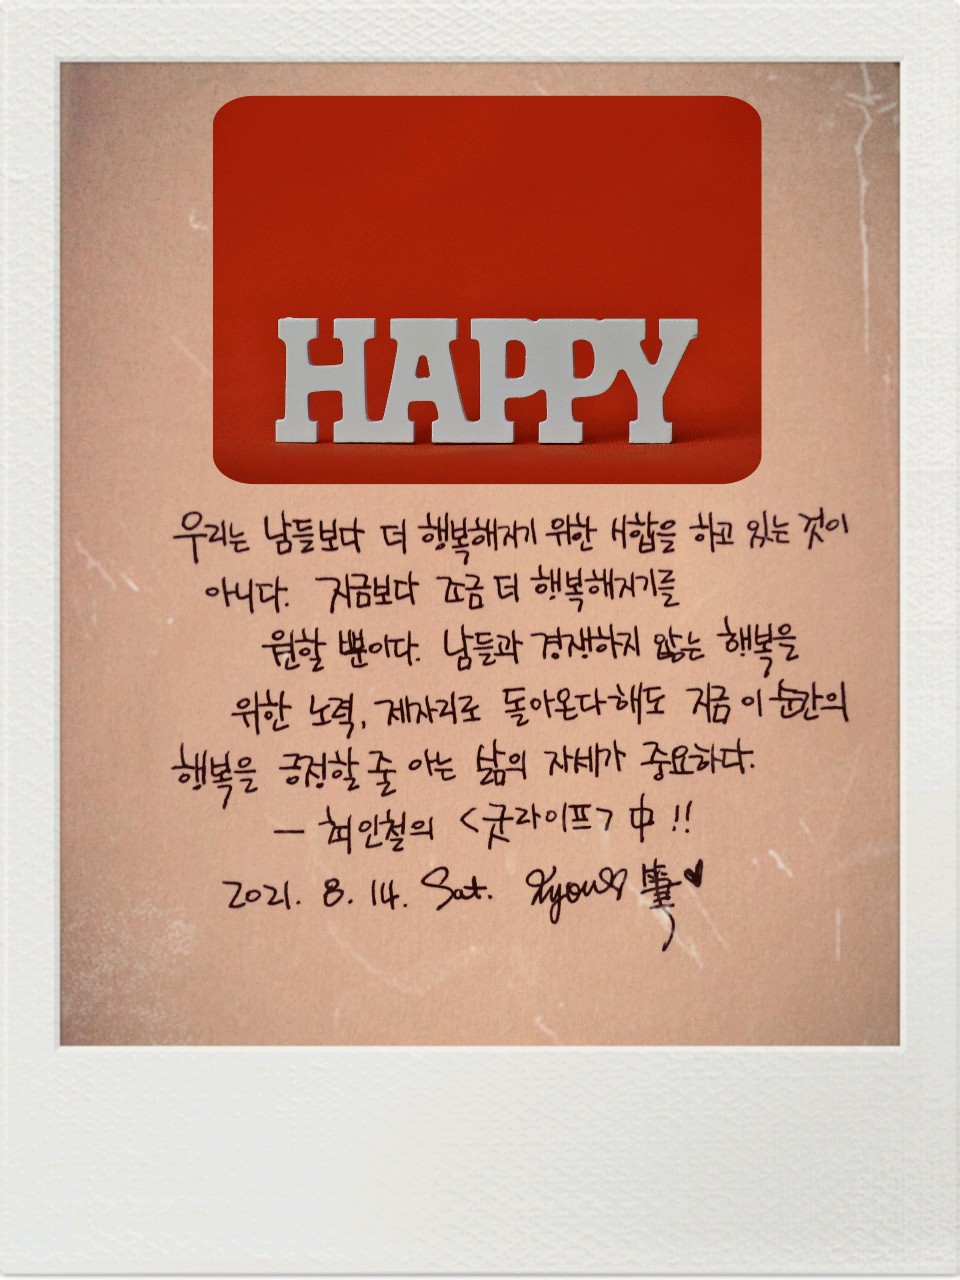 HAPPY
우리는 남들보다 더 행복해지기 위한 시합을 하고 있는 것이
아니다. 지금보다 조금 더 행복해지기를
원할 뿐이다. 남들과 경쟁하지 않는 행복을
위한 노력, 제자리로 돌아온다해도 지금 이 순간의
행복을 긍정할 줄 아는 삶의 자세가 중요하다.
— 최인철의 <굿라이프> 中 !!
2021. 8. 14. Sat.